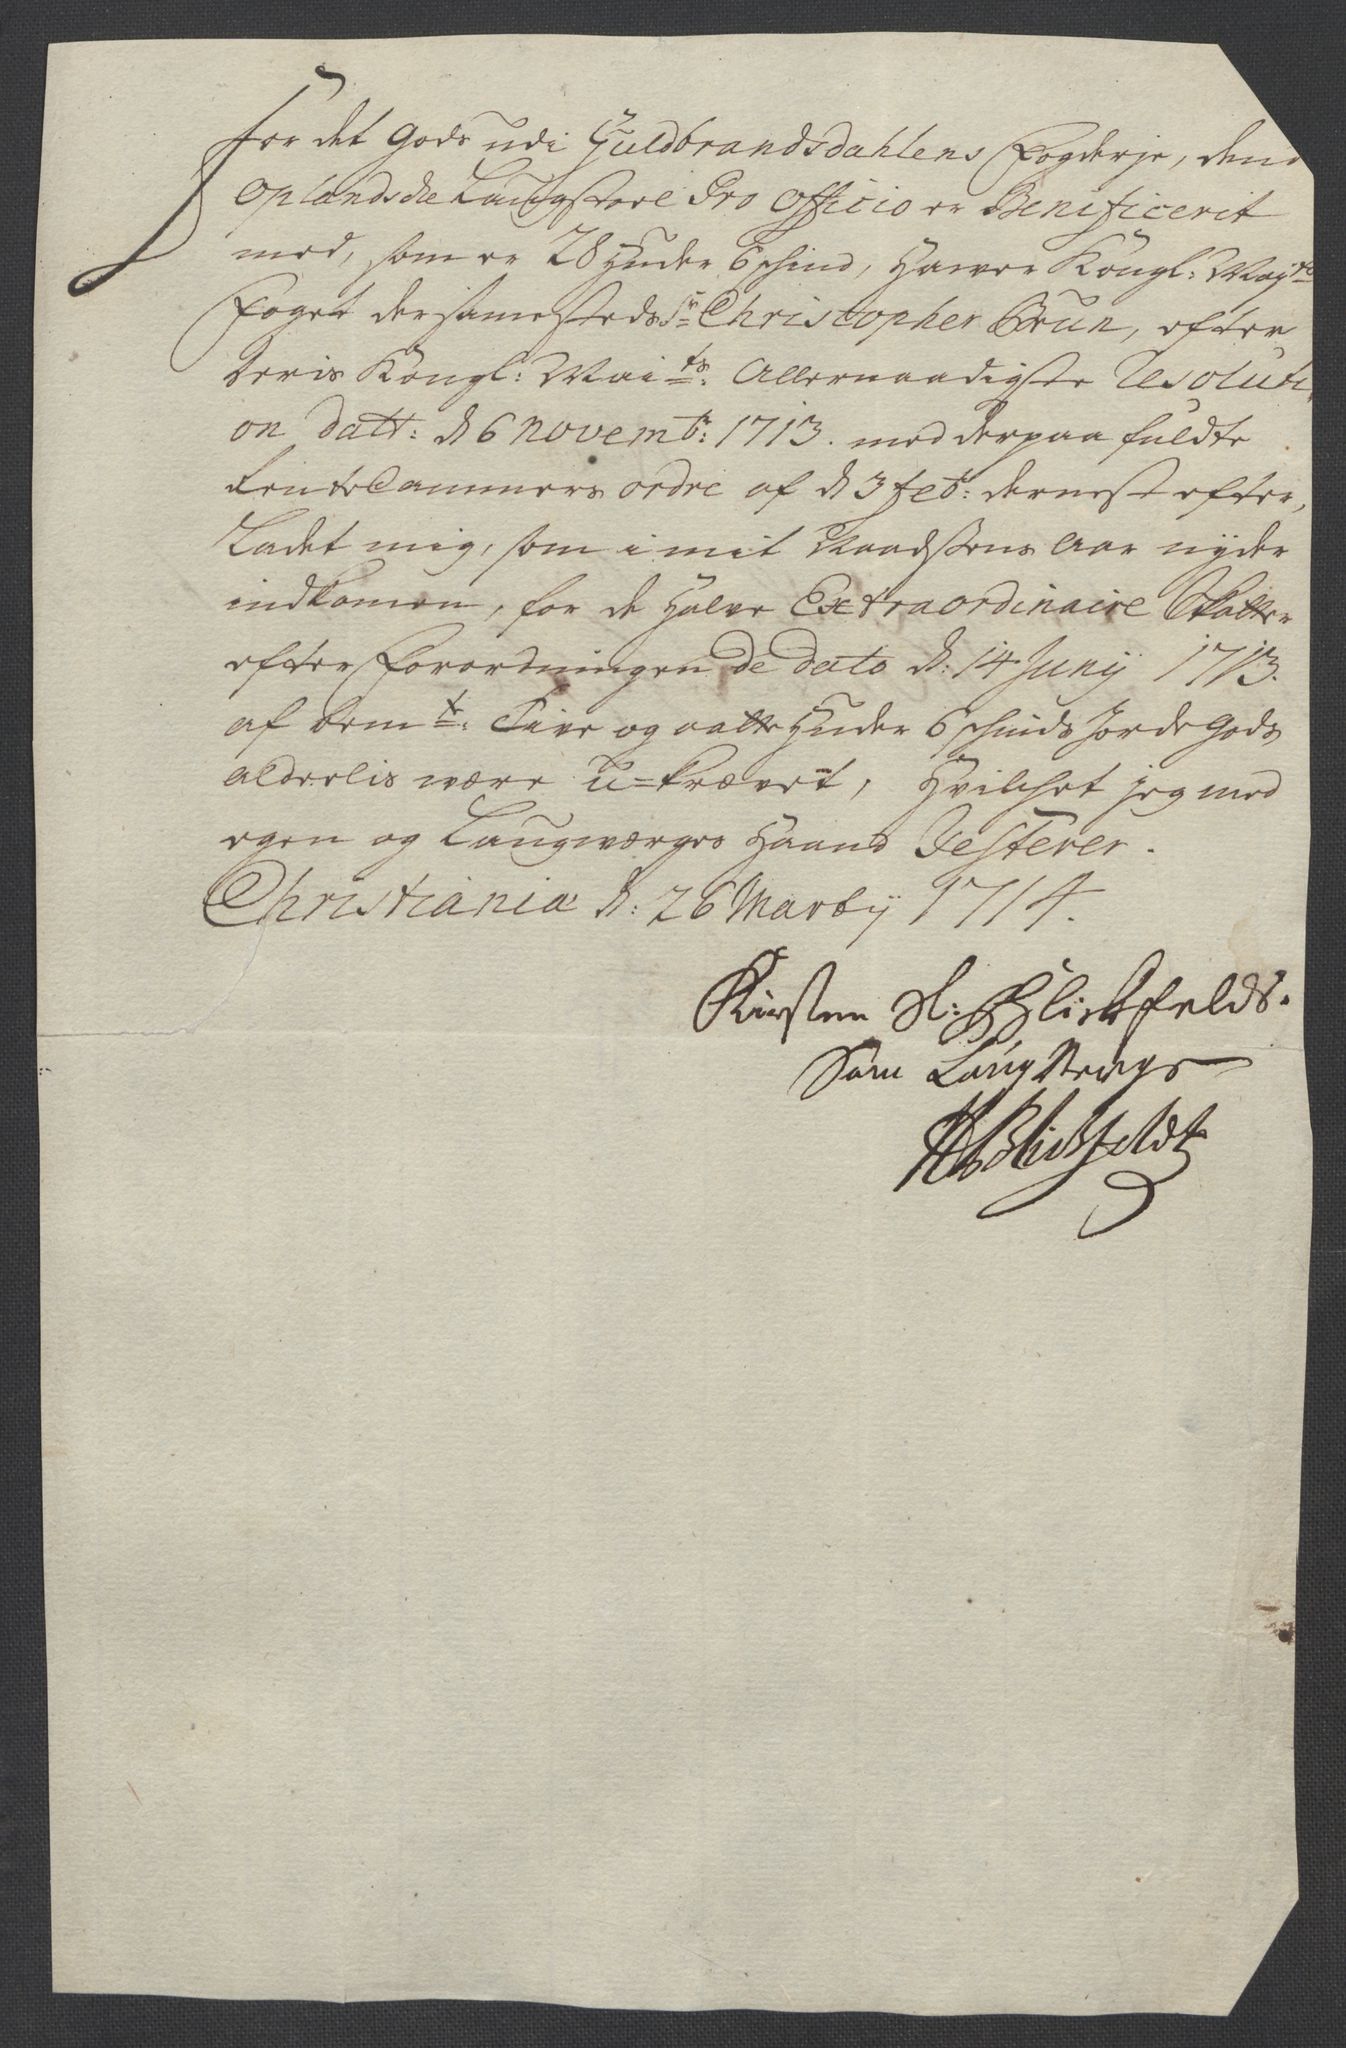 For det Gods udi Guldbrandsdahlens Fogderje, dend
Oplandsche Laugstoel Pro Officio er Benificerit
med, som er 28 Huder 6 schind, Hawer Kongl: Mayts
Foget dersamesteds Sr Christopher Brun, efter
deris Kongl: Maits: Allernaadigste Resoluti
on datt: d 6 Novembr: 1713. med derpaa fuldte
RenteCammers ordre af d 3 Febr: dernest efter,
Ladet mig, som i mit Naadsens Aar nyder
indkomen, for de Halve Extraordinaire Skatter
efter Forordningen de dato d: 14 Junij 1713.
af bemte: Tive og aatte Huder 6 schinds Jorde Gods
alderlis være u-krævet, Hvilchet jeg med
egen og Laugværges Haand Testerer.
Christiania d: 26 Martij 1714.
Kirsten Sl: Blickfelds.
Som Laug Verge
Blichfeldt